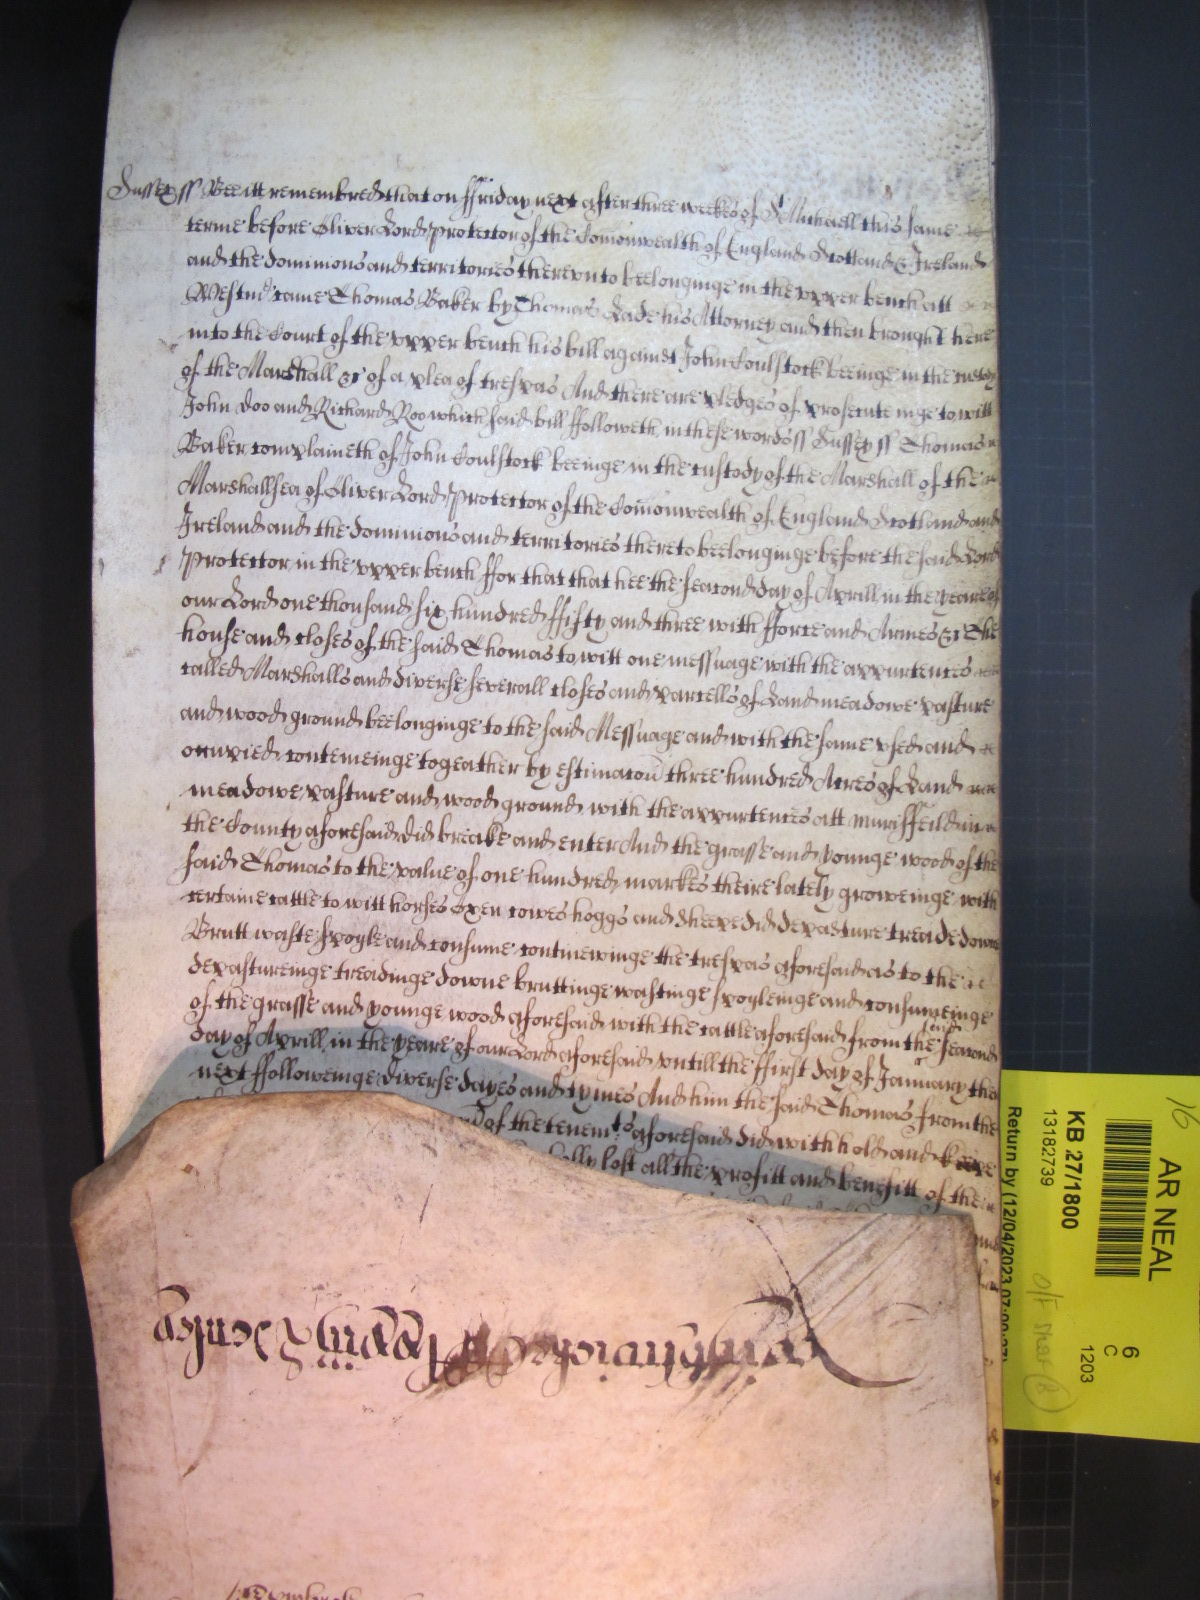 Sussex ss Bee itt remembred that on ffriday next after three weekes of St Michaell this same
terme before Oliver Lord Protector of the Comonwealth of England Scotland & Ireland
and the dominions and territories thereunto beelonginge in the upper bench att
Westmr came Thomas Baker by Thomas Lade his Attorney and then brought here
into the Court of the upper bench his bill against John Coulstock beeinge in the custody
of the Marshall &c of a plea of trespas And there are pledges of prosecuteinge to witt
John Doo and Richard Roo which said bill ffolloweth in these words ss Sussex ss Thomas
Baker complaineth of John Coulstock beeinge in the custody of the Marshall of the
Marshallsea of Oliver Lord Protector of the Comonwealth of England Scotland and
Ireland and the dominions and territories thereto beelonginge before the said Lord
Protector in the upper bench ffor that that hee the seacond day of Aprill in the yeare of
our Lord one thousand six hundred ffifty and three with fforce and Armes &c The
house and closes of the said Thomas to witt one messuage with the appurtences
called Marshalls and diverse severall closes and parcells of Land meadowe pasture
and wood ground beelonginge to the said Messuage and with the same used and
occupied conteineinge togeather by estimacon three hundred Acres of Land
meadowe pasture and wood ground with the appurtences att Mariffeild in
the County aforesaid did breake and enter And the grasse and younge wood of the
said Thomas to the value of one hundred markes theire lately groweinge with
certaine cattle to witt horses oxen cowes hoggs and sheepe did depasture treade downe
Brutt waste spoyle and consume continewinge the trespas aforesaid as to the
depastureinge treadinge downe bruttinge wastinge spoyleinge and consumeinge
of the grasse and younge wood aforesaid with the cattle aforesaid from the said seacond
day of Aprill in the yeare of our Lord aforesaid untill the ffirst day of January then
next ffolloweinge diverse dayes and tymes And him the said Thomas from the
of the tenemts aforesaid did withhold and keepe
lost all the profitt and benefitt of the
16
AR NEAL
KB 27/1800
13182739
Return by (12/04/2023 07:00:27)
6
C
1203